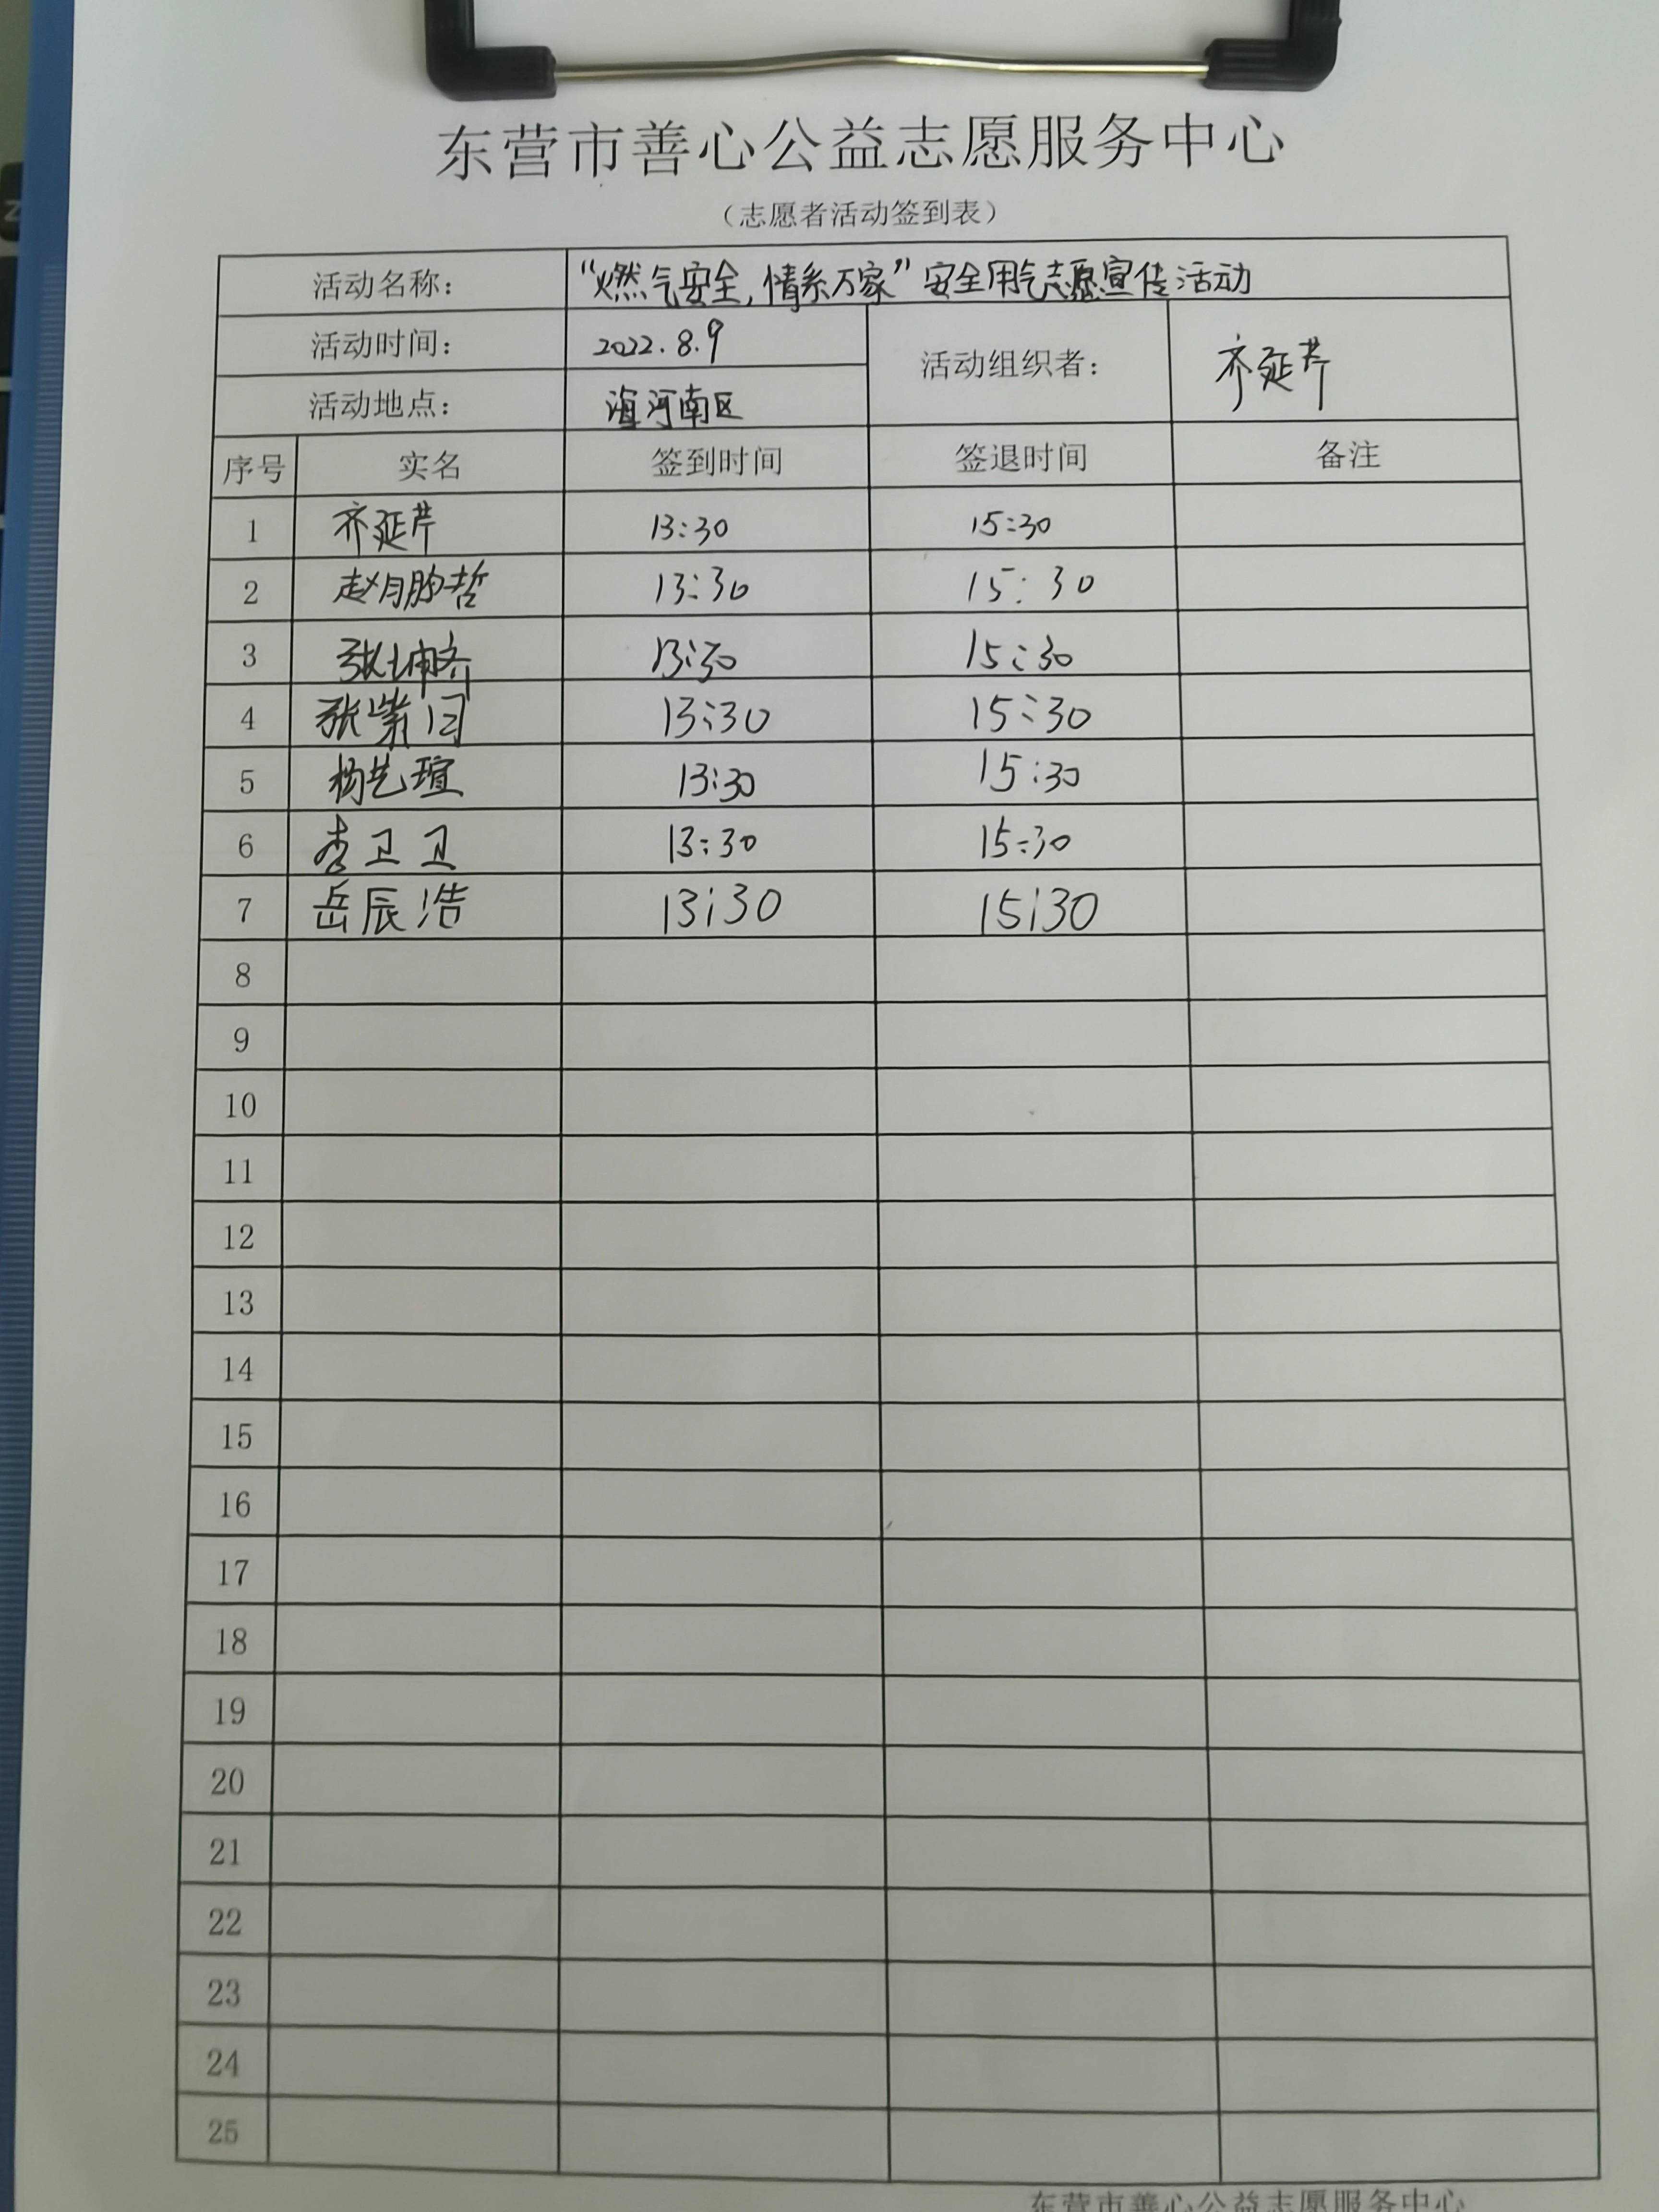 东营市善心公益志愿服务中心
（志愿者活动签到表）
活动名称： “燃气安全，情系万家”安全用气志愿宣传活动
活动时间： 2022.8.9 活动组织者： 齐延芹
活动地点： 河南区
序号 实名 签到时间 签退时间 备注
1 齐延芹 13:30 15:30
2 13:30 15:30
3 13:30 15:30
4 13:30 15:30
5 杨艺瑄 13:30 15:30
6 李卫卫 13:30 15:30
7 岳辰浩 13:30 15:30
8
9
10
11
12
13
14
15
16
17
18
19
20
21
22
23
24
25
东营市善心公益志愿服务中心